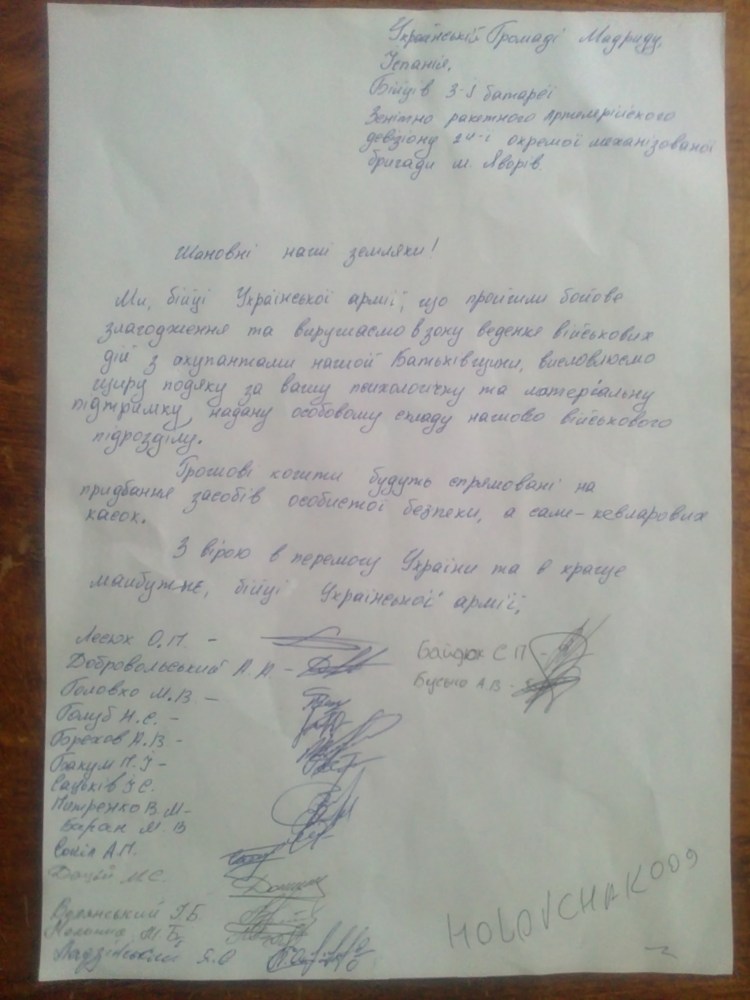 Українській Громаді Мадриду,
Іспанія.
Бійців 3-ї батареї
Зенітно ракетного артелерійского
девізіону 24-ї окремої механізованої
бригади м. Яворів.
Шановні наші земляки!
Ми, бійці Української армії, що пройшли бойове
злагодження та вирушаємо в зону ведення військових
дій з окупантами нашої Батьківщини, висловлюємо
щиру подяку за вашу психологічну та матеріальну
підтримку, надану особовому складу нашого військового
підрозділу.
Грошові кошти будуть спрямовані на
придбання засобів особистої безпеки, а саме - кевларових
касок.
З вірою в перемогу України та в краще
майбутнє, бійці Української армії,
Лесюк О.П. -
Добровольський А.А -
Головко М.В -
Голуб Н.Є. -
Горєхов А.В -
Бакум П.І -
Сацьків І.Є.
Петренко В.М-
Баран М.В
Соків А.П.
М.С.
І.Б.
М.Б.
Я.О
Байдюк С П -
А.В -
HOLOVCHAK009